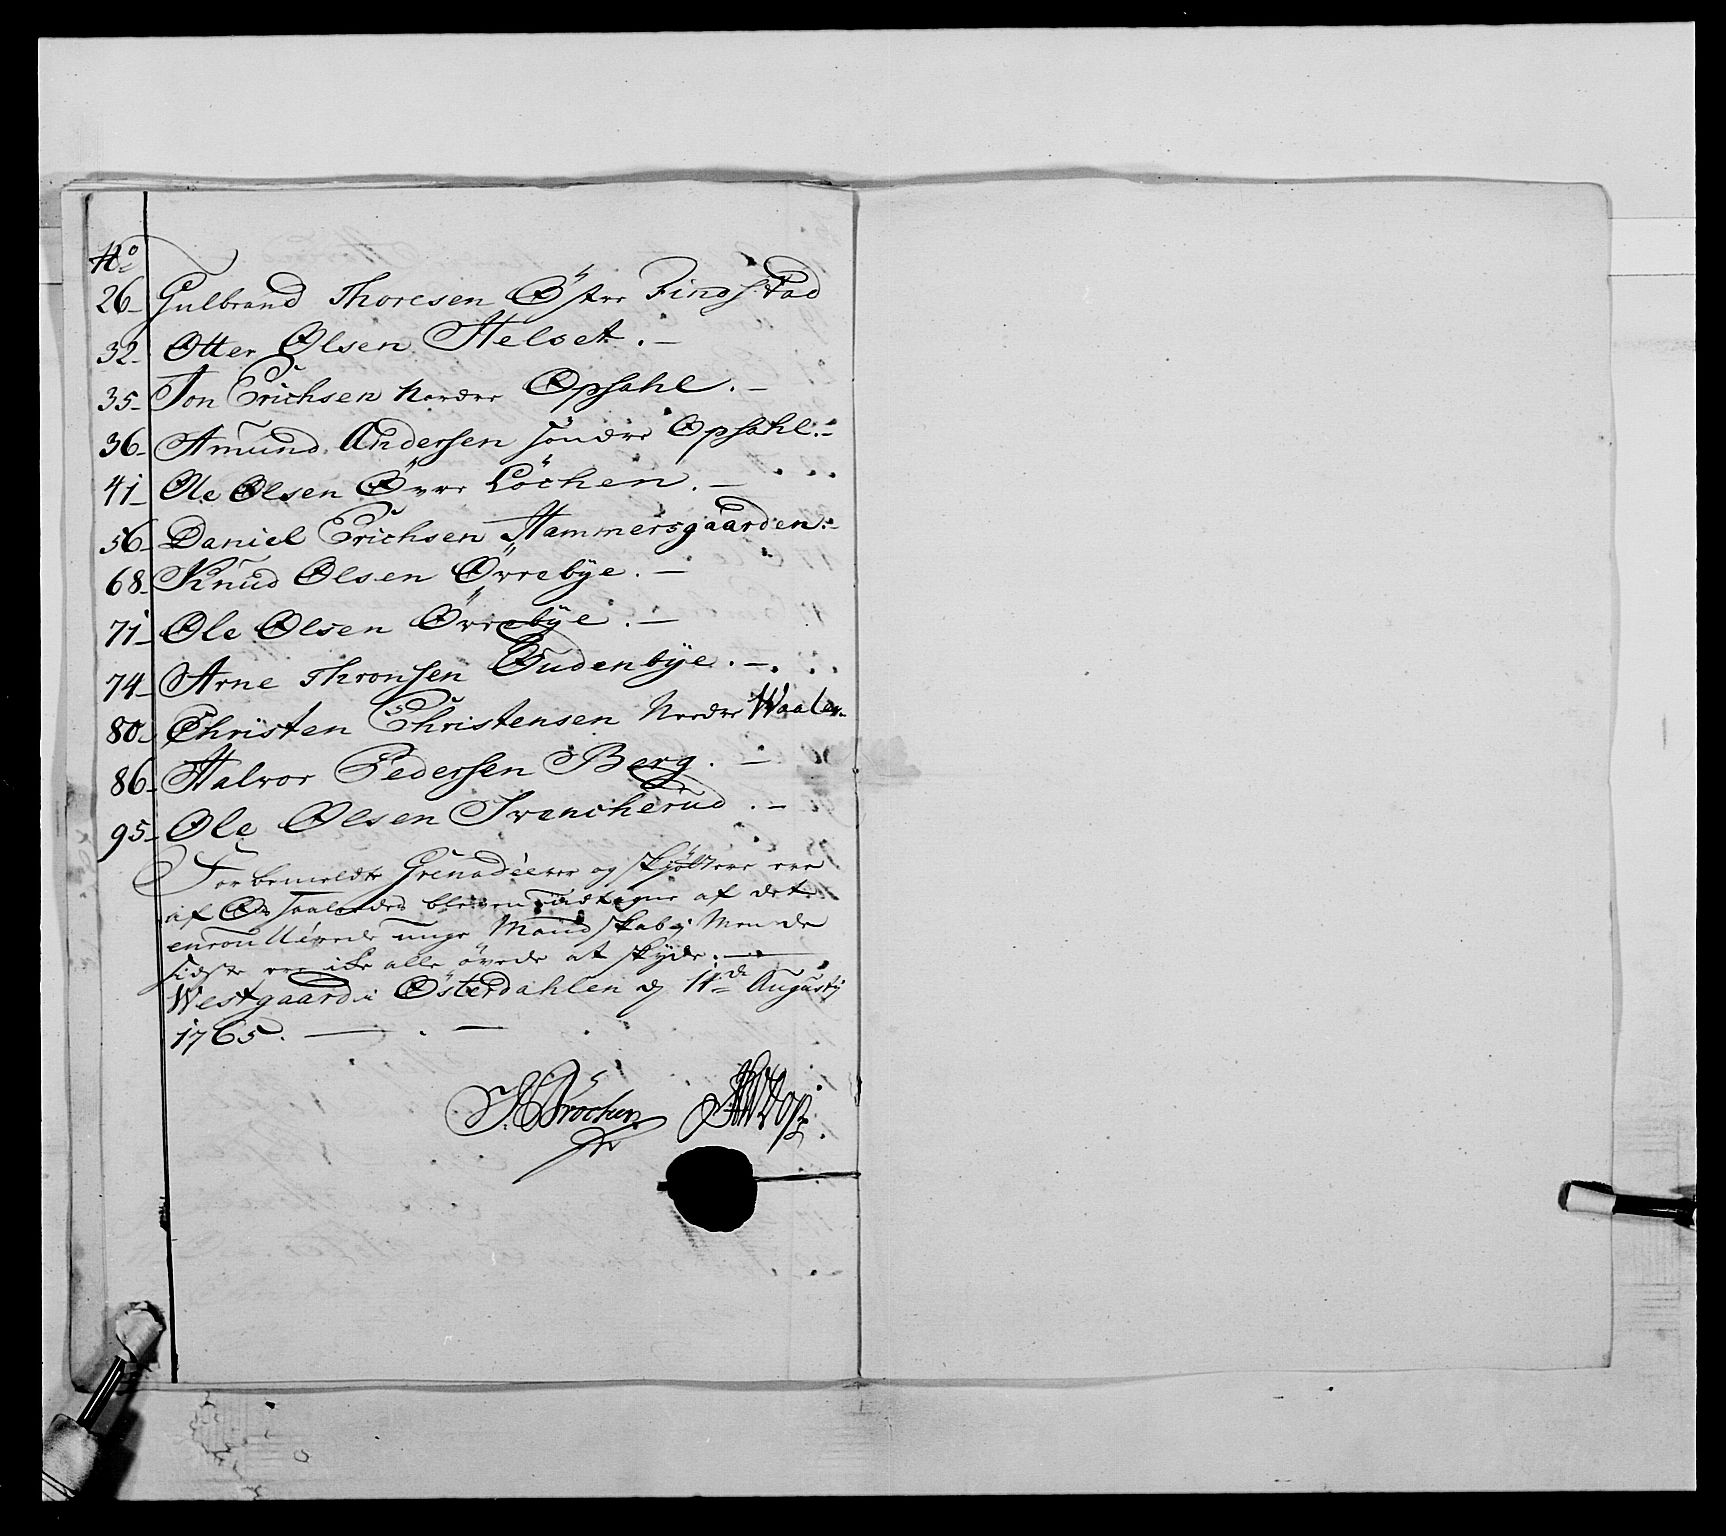 No
26 Gulbrand Thoresen Öster Findstad
32 Otter Olsen Helset.
35 Jon Erichsen Nordre Opsahl.
36 Amund Andersen söndre Opsahl.
41 Ole Olsen Övre Löchen.
56 Daniel Erichsen Hammersgaarden.
68 Knud Olsen Övrebÿe.
71 Ole Olsen Övrebÿe.
74 Arne Thronsen Oudenbÿe.
80 Christen Christensen Nordre Waaler
86 Halvor Pedersen Berg.
95 Ole Olsen Svencherud.
Forbemeldte Grenadeerer og skÿttere ere
af bleven udtagne af det
enroullerede unge Mandskab, Men de
sidste ere ike alle övede at skÿde.
Westgaard i Österdahlen d 11de Augustÿ
1765.